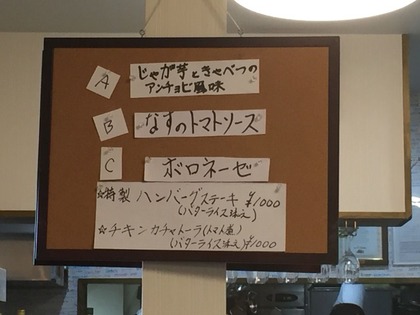 A
じゃが芋ときゃべつの
アンチョビ風味
B
なすのトマトソース
C
ボロネーゼ
☆特製 ハンバーグステーキ ¥1000
(バターライス添え)
☆チキンカチャトーラ(トマト煮)
(バターライス添え)¥1000